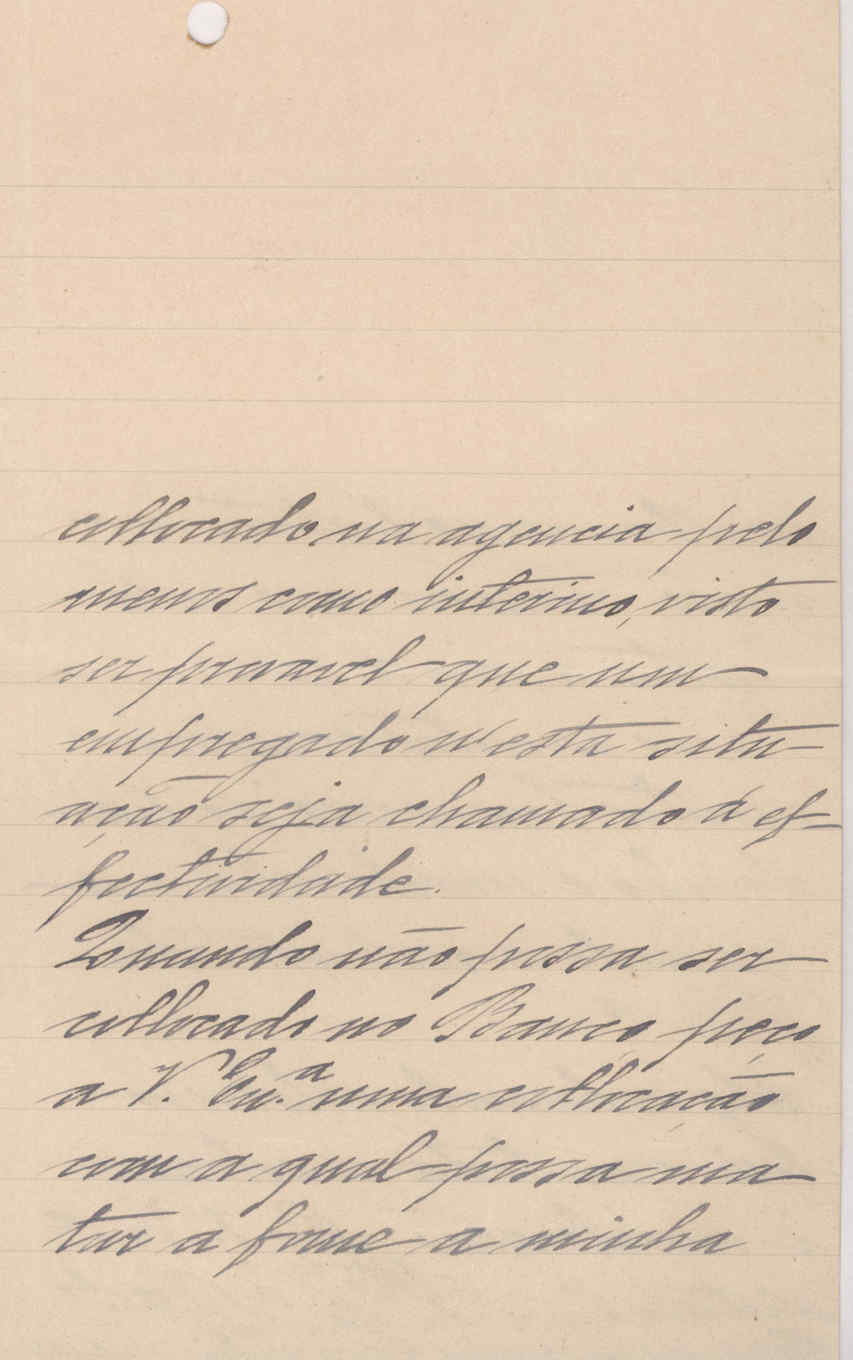 collocado na agencia pelo
menos como interino, visto
ser provavel que um
empregado n'esta situ-
ação seja chamado á ef-
fectividade.
Quando não possa ser
collocado no Banco peço
a V. Ex.ª uma collocação
com a qual possa ma-
tar a fome a minha